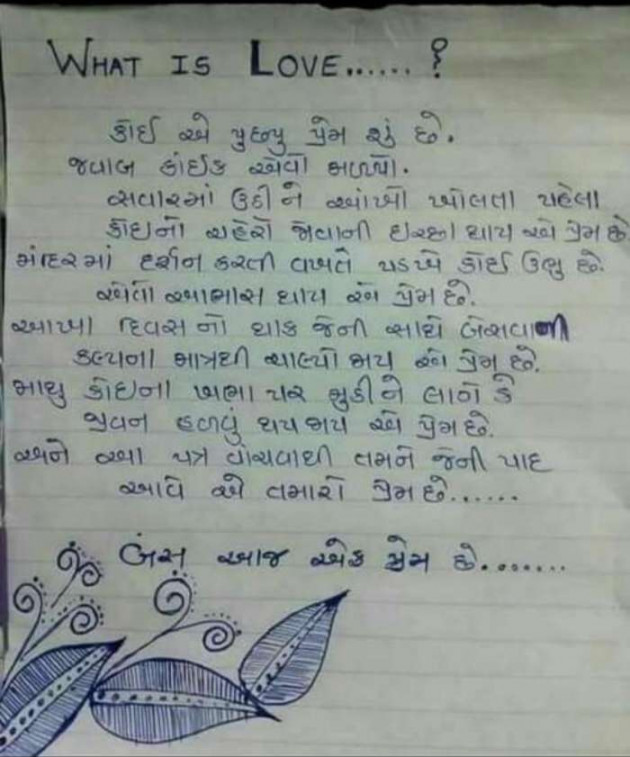 WHAT IS LOVE......?
કોઈ એ પુછ્યુ પ્રેમ શું છે.
જવાબ કાંઈક એવો મળ્યો.
સવારમાં ઉઠી ને આંખો ખોલતા પહેલા
કોઇનો ચહેરો જોવાની ઇચ્છા થાય એ પ્રેમ છે
મંદિરમાં દર્શન કરતી વખતે પડખે કોઈ ઉભુ છે.
એવો આભાસ થાય એ પ્રેમ છે.
આખા દિવસ નો થાક જેની સાથે બેસવાની
કલ્પના માત્રથી ચાલ્યો જાય એ પ્રેમ છે.
માથુ કોઇના ખભા પર મુકી ને લાગે કે
જીવન હળવું થય જાય એ પ્રેમ છે.
અને આ પત્ર વાંચવાથી તમને જેની યાદ
આવે એ તમારો પ્રેમ છે......
બસ આજ એક પ્રેમ છે........